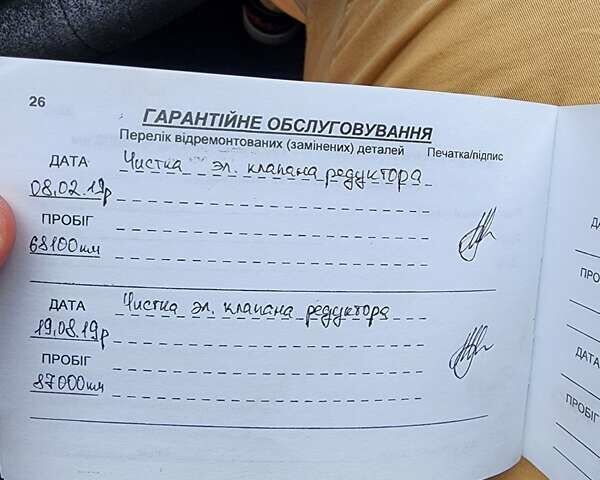 26
ГАРАНТІЙНЕ ОБСЛУГОВУВАННЯ
Перелік відремонтованих (замінених) деталей Печатка/підпис
ДАТА Чистка эл. клапана редуктора
08.02.19р
ПРОБІГ
68100км
ДАТА Чистка эл. клапана редуктора
19.08.19р
ПРОБІГ
87000км
ДА
ПРО
ДАТА
ПРОБІГ